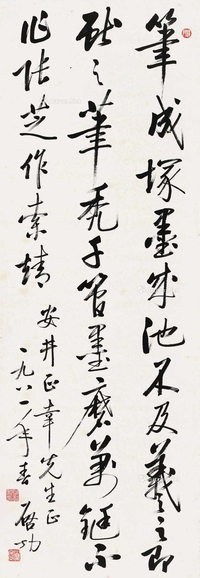 筆成塚墨成池不及羲之即
献之筆禿千管墨磨萬鋌不
作張芝作索靖
安井正幸先生正
一九八一年春 啓功